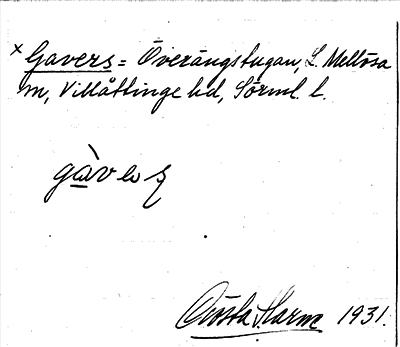 x Gavers = Överängstugan, L. Mellösa
sn, Villåttinge hd, Sörml. l.
gàvəʂ
Gösta Harm 1931.